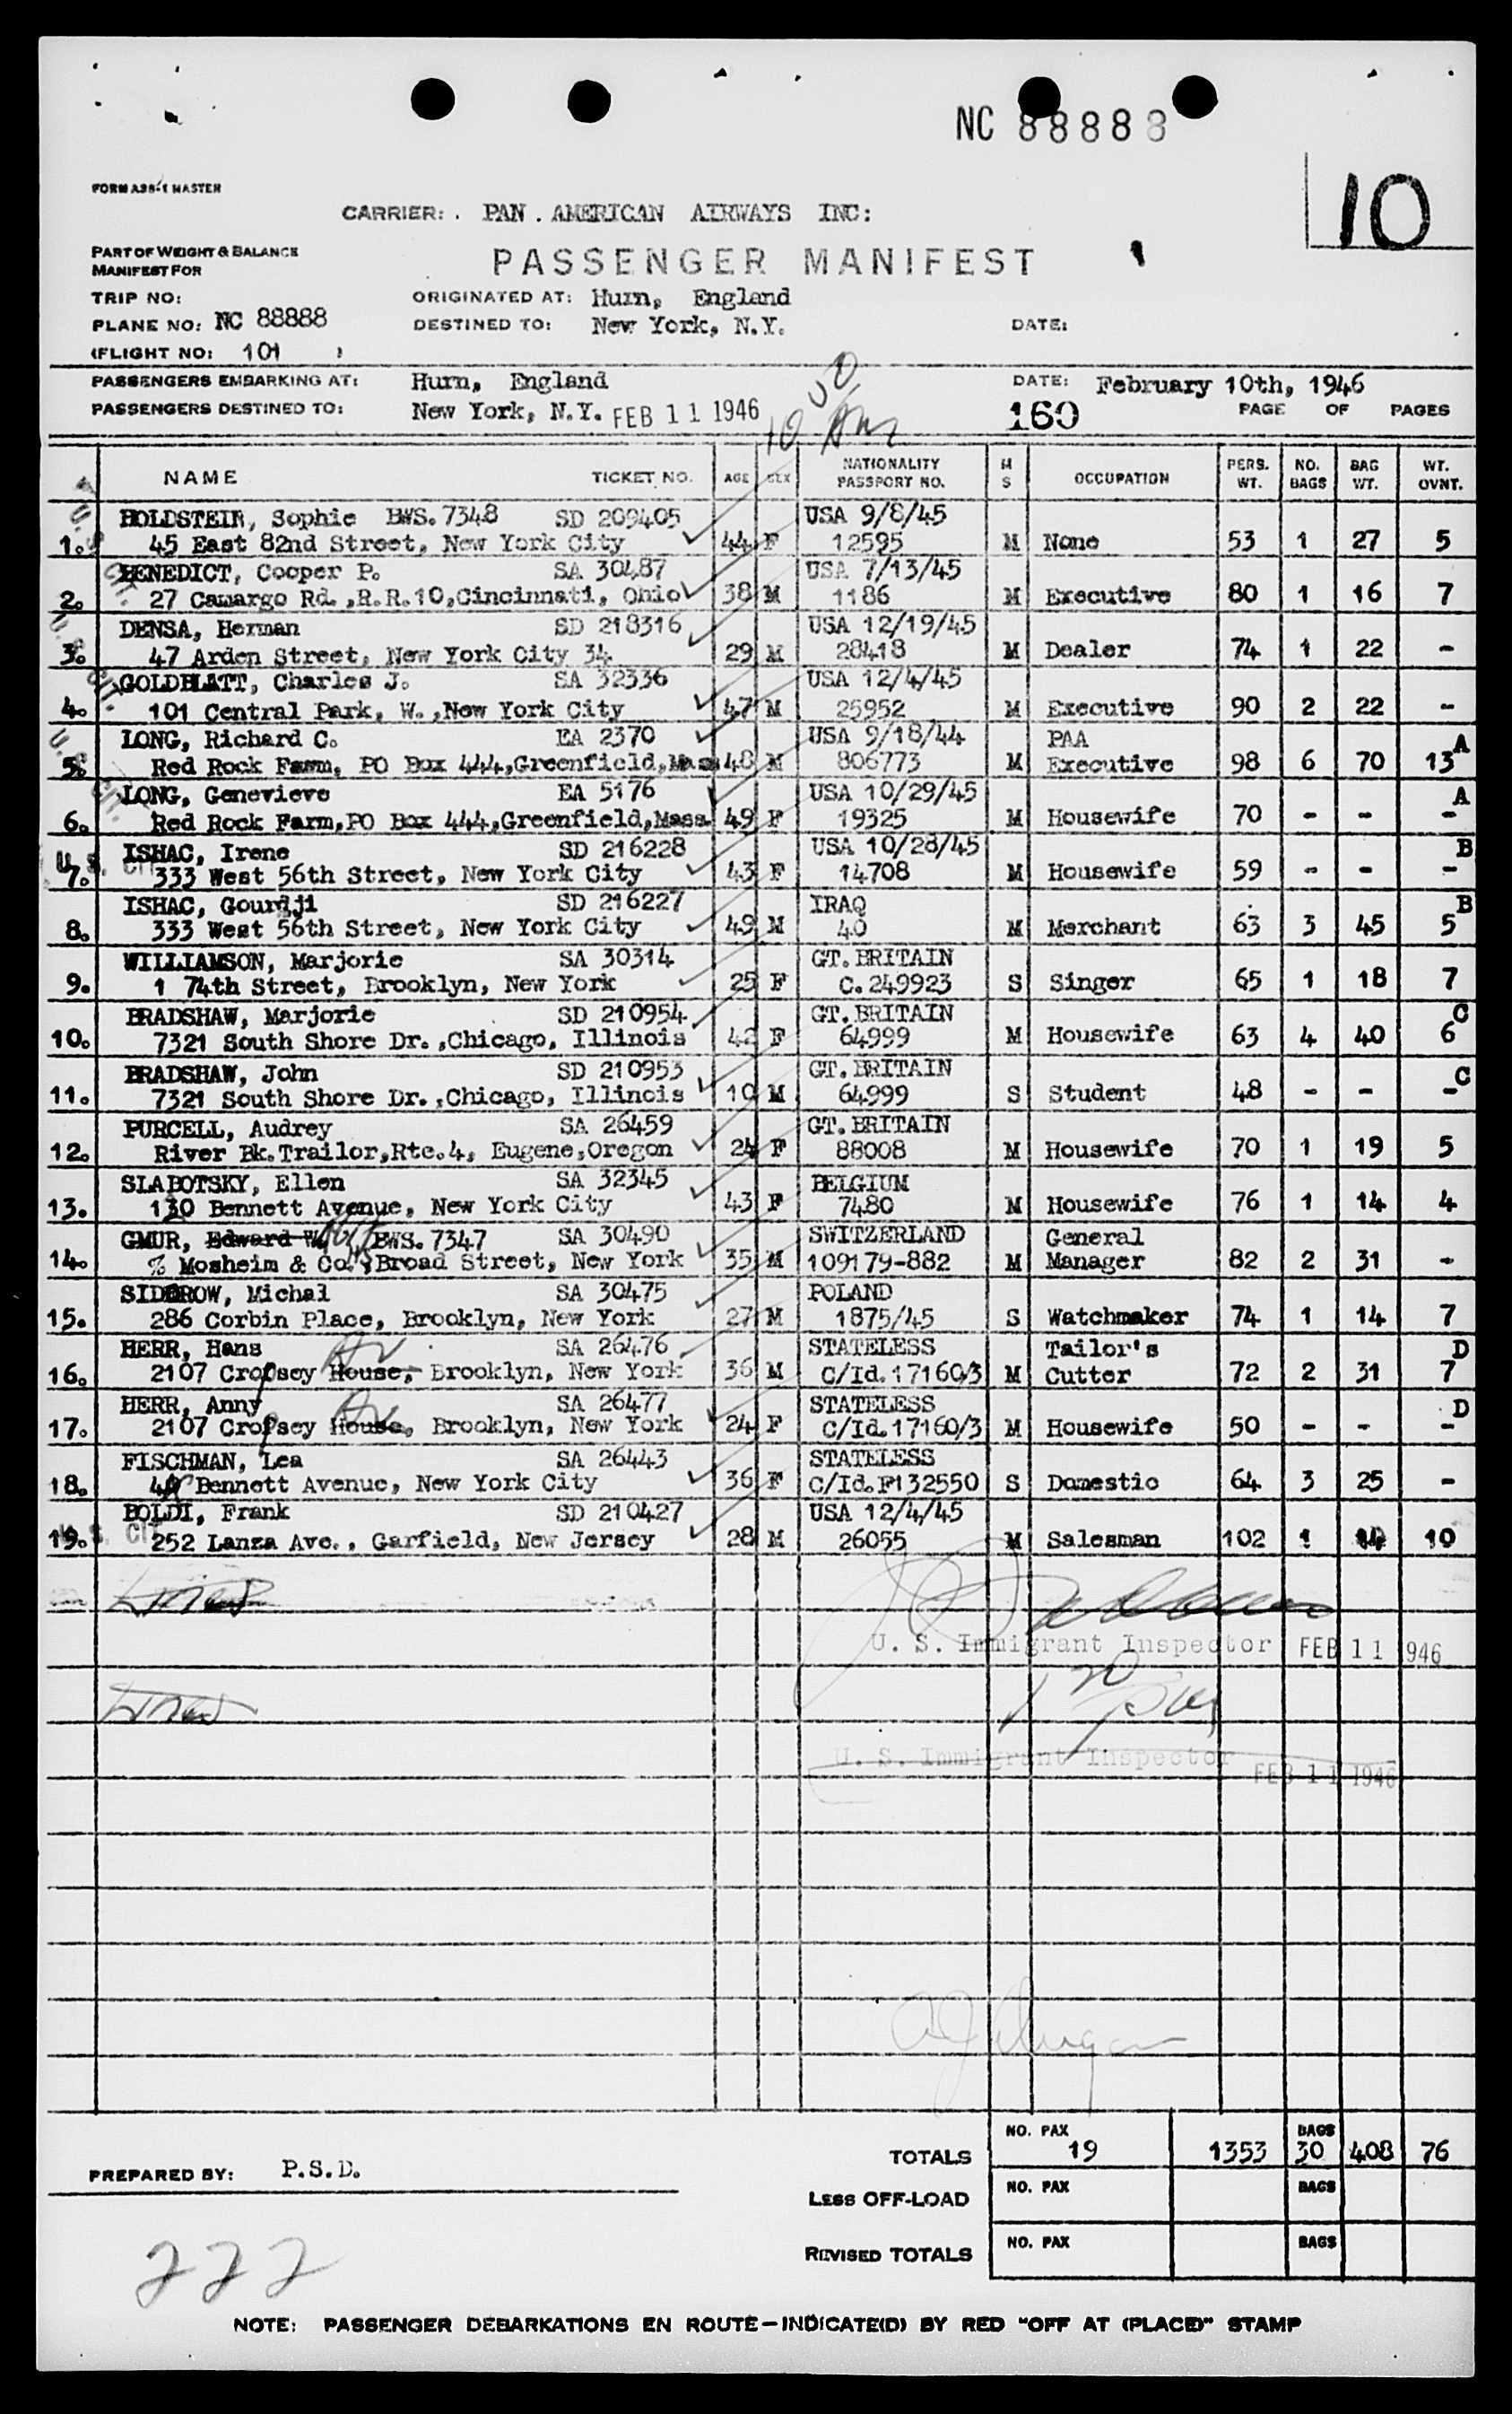 NC 88888
FORM A38-1 MASTER
10
CARRIER: . PAN . AMERICAN AIRWAYS INC:
PART OF WEIGHT & BALANCE
MANIFEST FOR
PASSENGER MANIFEST
TRIP NO:
ORIGINATED AT: Hurn, England
PLANE NO: NC 88888
DESTINED TO: New York, N.Y.
DATE:
(FLIGHT NO: 101 )
PASSENGERS EMBARKING AT: Hurn, England
DATE: February 10th, 1946
PASSENGERS DESTINED TO: New York, N.Y. FEB 11 1946
160 PAGE OF PAGES
NAME TICKET NO. AGE SEX NATIONALITY PASSPORT NO. M S OCCUPATION PERS. WT. NO. BAGS BAG WT. WT. OVNT.
HOLDSTEIN, Sophie BWS. 7348 SD 209405 USA 9/8/45
1. 45 East 82nd Street, New York City 44 F 12595 M None 53 1 27 5
BENEDICT, Cooper P. SA 30487 USA 7/13/45
2. 27 Camargo Rd.,R.R.10,Cincinnati, Ohio 38 M 1186 M Executive 80 1 16 7
DENSA, Herman SD 218316 USA 12/19/45
3. 47 Arden Street, New York City 34 29 M 28418 M Dealer 74 1 22 -
GOLDBLATT, Charles J. SA 32336 USA 12/4/45
4. 101 Central Park, W.,New York City 47 M 25952 M Executive 90 2 22 -
LONG, Richard C. EA 2370 USA 9/18/44 PAA A
5. Red Rock Farm, PO Box 444,Greenfield,Mass 48 M 806773 M Executive 98 6 70 13
LONG, Genevieve EA 5176 USA 10/29/45 A
6. Red Rock Farm,PO Box 444,Greenfield,Mass. 49 F 19325 M Housewife 70 - - -
ISHAC, Irene SD 216228 USA 10/28/45 B
7. 333 West 56th Street, New York City 43 F 14708 M Housewife 59 - - -
ISHAC, Gourdji SD 216227 IRAQ B
8. 333 West 56th Street, New York City 49 M 40 M Merchant 63 3 45 5
WILLIAMSON, Marjorie SA 30314 GT.BRITAIN
9. 1 74th Street, Brooklyn, New York 25 F C.249923 S Singer 65 1 18 7
BRADSHAW, Marjorie SD 210954 GT.BRITAIN C
10. 7321 South Shore Dr.,Chicago, Illinois 42 F 64999 M Housewife 63 4 40 6
BRADSHAW, John SD 210953 GT.BRITAIN C
11. 7321 South Shore Dr.,Chicago, Illinois 10 M 64999 S Student 48 - - -
PURCELL, Audrey SA 26459 GT.BRITAIN
12. River Bk.Trailor,Rte.4, Eugene,Oregon 24 F 88008 M Housewife 70 1 19 5
SLABOTSKY, Ellen SA 32345 BELGIUM
13. 130 Bennett Avenue, New York City 43 F 7480 M Housewife 76 1 14 4
GMUR, Edward W. BWS. 7347 SA 30490 SWITZERLAND General
14. % Mosheim & Co., Broad Street, New York 35 M 109179-882 M Manager 82 2 31 -
SIDOROW, Michal SA 30475 POLAND
15. 286 Corbin Place, Brooklyn, New York 27 M 1875/45 S Watchmaker 74 1 14 7
HERR, Hans SA 26476 STATELESS Tailor's D
16. 2107 Cropsey House, Av Brooklyn, New York 36 M C/Id.17160/3 M Cutter 72 2 31 7
HERR, Anny SA 26477 STATELESS D
17. 2107 Cropsey House, Av Brooklyn, New York 24 F C/Id.17160/3 M Housewife 50 - - -
FISCHMAN, Lea SA 26443 STATELESS
18. Bennett Avenue, New York City 36 F C/Id.F132550 S Domestic 64 3 25 -
BOLDI, Frank SD 210427 USA 12/4/45
19. 252 Lanza Ave., Garfield, New Jersey 28 M 26055 M Salesman 102 1 14 10
U. S. Immigrant Inspector FEB 11 1946
U. S. Immigrant Inspector FEB 11 1946
TOTALS NO. PAX 19 1353 BAGS 30 408 76
PREPARED BY: P.S.D.
LESS OFF-LOAD NO. PAX BAGS
REVISED TOTALS NO. PAX BAGS
222
NOTE: PASSENGER DEBARKATIONS EN ROUTE—INDICATE(D) BY RED "OFF AT (PLACE)" STAMP